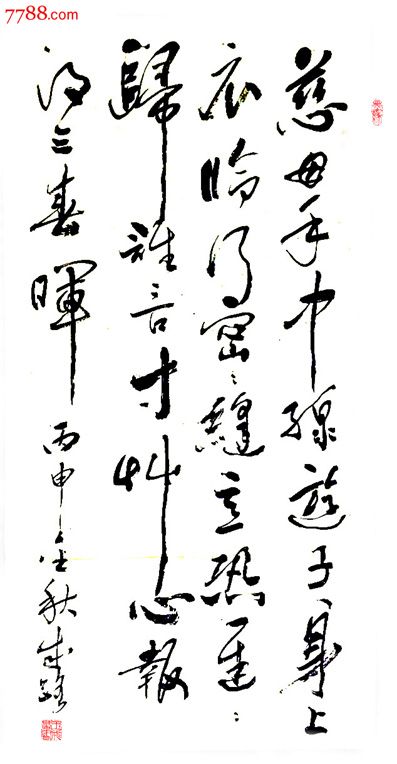 7788.com
慈母手中線遊子身上
衣臨行密〻縫意恐遲〻
歸誰言寸艸心報
得三春暉
丙申金秋